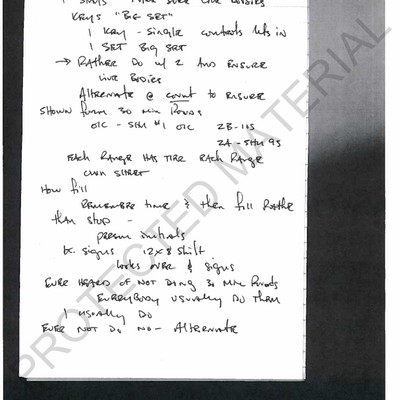 MAKE SURE LIVE BODIES
KEYS "BIG SET"
1 KEY - SINGLE CONTROLS in
1 SET BIG SET
→ RATHER DO w/ 2 AND ENSURE
LIVE BODIES
ALTERNATE @ COUNT TO ENSURE
SHOWN FORM 30 MIN ROUNDS
OIC - SHU #1 OIC 2B-11S
2A - 5HM 9S
EACH RANGE HAS TIRE EACH RANGE
OWN SHEET
HOW fill
REMEMBER time & then fill RATHER
than STOP -
initials
signs 12x8 Shift
looks OVER & signs
EVER HEARD OF NOT DOING 30 MIN ROUNDS
EVERYBODY USUALLY DO THEM
I USUALLY DO
EVER NOT DO NO - ALTERNATE
PROTECTED MATERIAL